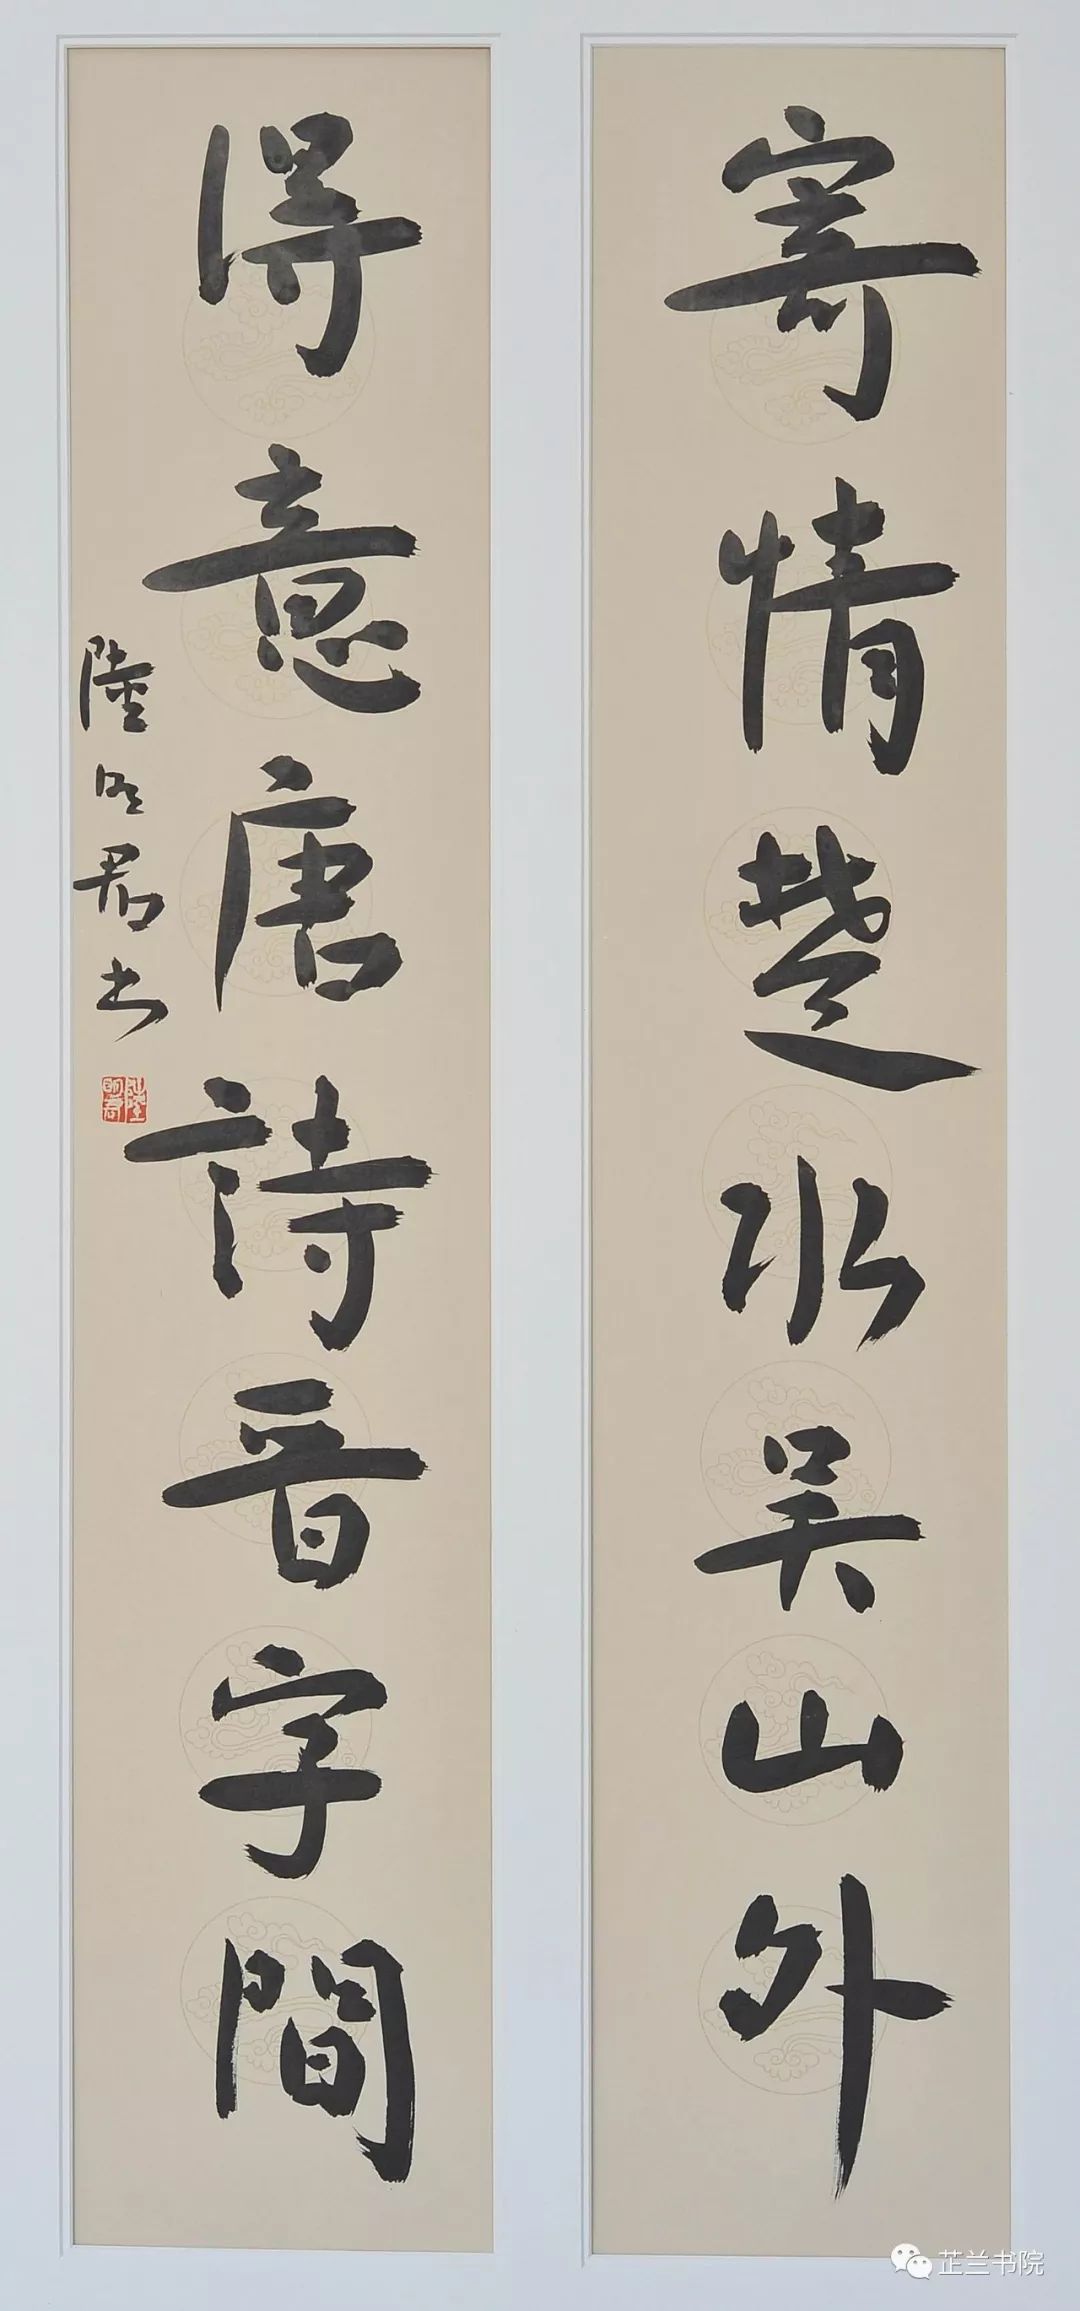 寄情楚水吴山外
得意唐詩晋字間
陸明君书
陸明君
芷兰书院